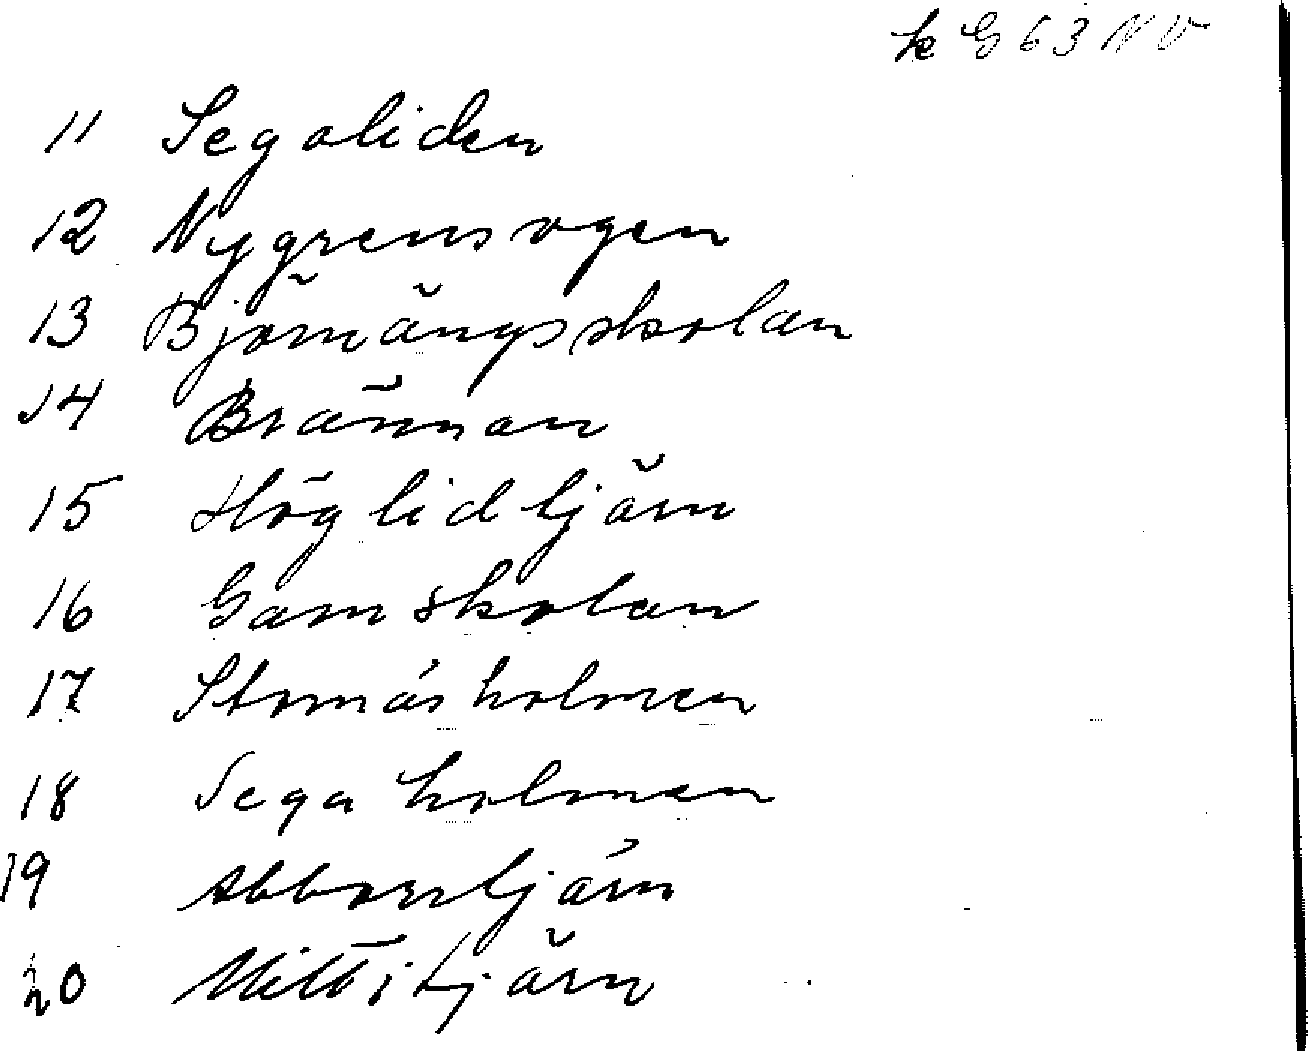 k G 63 NV
11 Segaliden
12 Nygrensvgen
13 Björnängsskolan
14 Brännan
15 Höglidtjärn
16 Gamskolan
17 Stornäsholmen
18 Segaholmen
19 Abborrtjärn
20 Mittitjärn